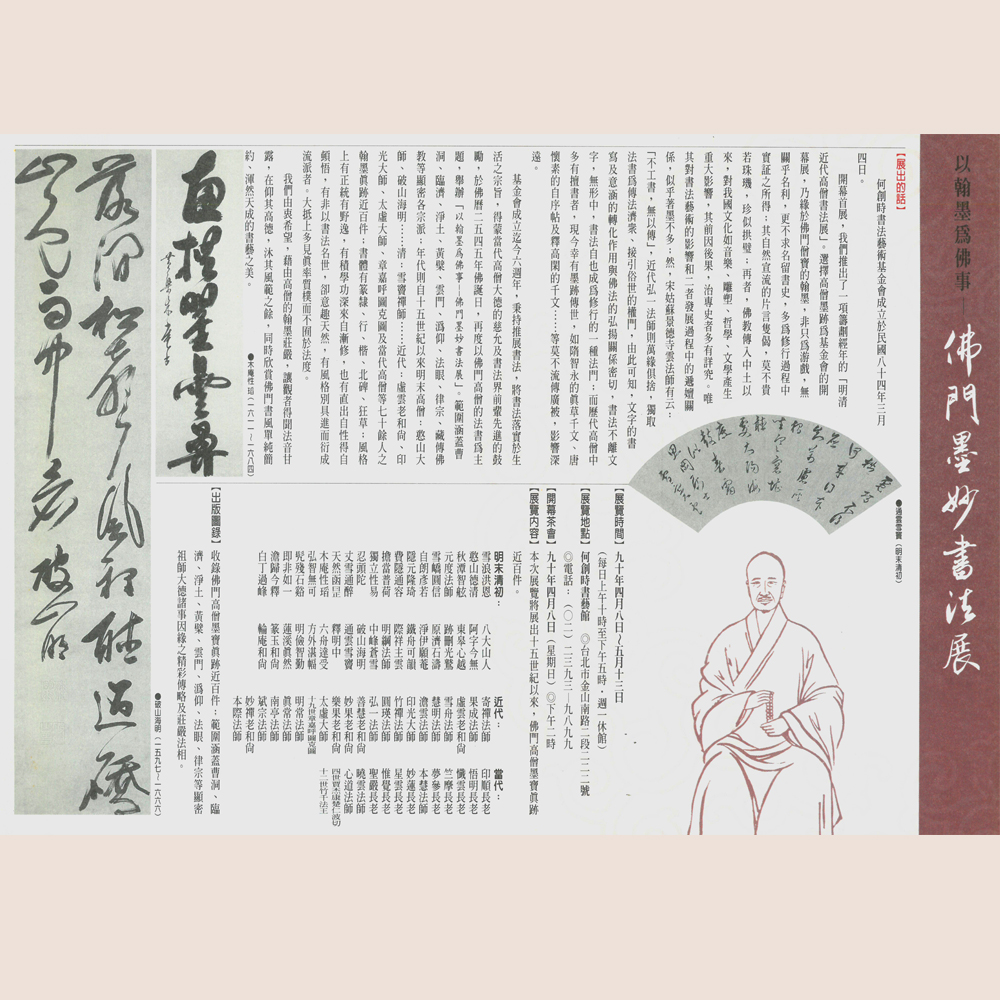 以翰墨為佛事——
佛門墨妙書法展
【展出的話】
何創時書法藝術基金會成立於民國八十四年三月
四日。
開幕首展，我們推出了一項籌劃經年的「明清
近代高僧書法展」。選擇高僧墨跡為基金會的開
幕展，乃緣於佛門僧寶的翰墨，非只為游戲，無
關乎名利，更不求名留書史，多為修行過程中
實証之所得；其自然宣流的片言隻偈，莫不貴
若珠璣，珍似拱璧；再者，佛教傳入中土以
來，對我國文化如音樂、雕塑、哲學、文學產生
重大影響，其前因後果，治專史者多有詳究。唯
其對書法藝術的影響和二者發展過程中的遞嬗關
係，似乎著墨不多；然，宋姑蘇景德寺雲法師有云：
「不工書，無以傳」，近代弘一法師則萬緣俱捨，獨取
法書為傳法濟衆、接引俗世的權門，由此可知，文字的書
寫及意涵的轉化作用與佛法的弘揚關係密切，書法不離文
字，無形中，書法自也成為修行的一種法門；而歷代高僧中
多有擅書者，現今幸有墨跡傳世，如隋智永的真草千文、唐
懷素的自序帖及釋高閑的千文……等莫不流傳廣被，影響深
遠。
基金會成立迄今六週年，秉持推展書法，將書法落實於生
活之宗旨，得蒙當代高僧大德的慈允及書法界前輩先進的鼓
勵，於佛曆二五四五年佛誕日，再度以佛門高僧的法書為主
題，舉辦「以翰墨為佛事—佛門墨妙書法展」。範圍涵蓋曹
洞、臨濟、淨土、黃檗、雲門、溈仰、法眼、律宗、藏傳佛
教等顯密各宗派；年代則自十五世紀以來明末高僧：憨山大
師、破山海明……清：雪竇禪師……近代：虛雲老和尚、印
光大師、太虛大師、章嘉呼圖克圖及當代高僧等七十餘人之
翰墨真跡近百件；書體有篆隸、行、楷、北碑、狂草；風格
上有正統有野逸，有積學功深來自漸修，也有直出自性得自
頓悟，有非以書法名世，卻意趣天然，有風格別具進而衍成
流派者。大抵上多見真率質樸而不囿於法度。
我們由衷希望，藉由高僧的翰墨莊嚴，讓觀者得聞法音甘
露，在仰其高德，沐其風範之餘，同時欣賞佛門書風單純簡
約、渾然天成的書藝之美。
●通雲雪竇（明末清初）
●木庵性瑫（一六一一～一六八四）
●破山海明（一五九七～一六六六）
【展覽時間】九十年四月八日～五月十三日
（每日上午十時至下午五時，週一休館）
【展覽地點】何創時書藝館　◎台北市金山南路二段二二二號
◎電話：（〇二）二三九三—九八九九
【開幕茶會】九十年四月八日（星期日）◎下午二時
【展覽內容】本次展覽將展出十五世紀以來，佛門高僧墨寶真跡
近百件。
明末清初：
雪浪洪恩
憨山德清
秋潭智舷
元度法師
雪嶠圓信
自朗彥若
隱元隆琦
費隱通容
擔當普荷
獨立性易
忍頭陀
丈雪通醉
天然函昰
木庵性瑫
弘智無可
髠殘石谿
即非如一
澹歸今釋
白丁過峰
八大山人
阿字今無
東皋心越
跡刪光鷲
原濟石濤
淨伊願菴
鐵舟可韻
際祥主雲
明鋼法師
中峰蒼雪
破山海明
通雲雪竇
釋明中
六舟達受
方外湛幅
明儉智勤
蓮溪真然
篆玉和尚
輪庵和尚
近代：
寄禪法師
果成法師
虛雲老和尚
雪舟法師
慧明法師
澹雲法師
印光大師
竹禪法師
圓瑛法師
弘一法師
善慧老和尚
妙果老和尚
樂果老和尚
太虛大師
十九世章嘉呼圖克圖
明常法師
真常法師
南亭法師
斌宗法師
妙禪老和尚
本際法師
當代：
印順長老
悟明長老
懺雲長老
竺摩長老
夢參長老
本慧法師
妙蓮長老
星雲長老
惟覺長老
聖嚴長老
曉雲法師
心道法師
四世賈杰康楚仁波切
十二世竹千法王
【出版圖錄】收錄佛門高僧墨寶真跡近百件；範圍涵蓋曹洞、臨
濟、淨土、黃檗、雲門、溈仰、法眼、律宗等顯密
祖師大德諸事因緣之精彩傳略及莊嚴法相。